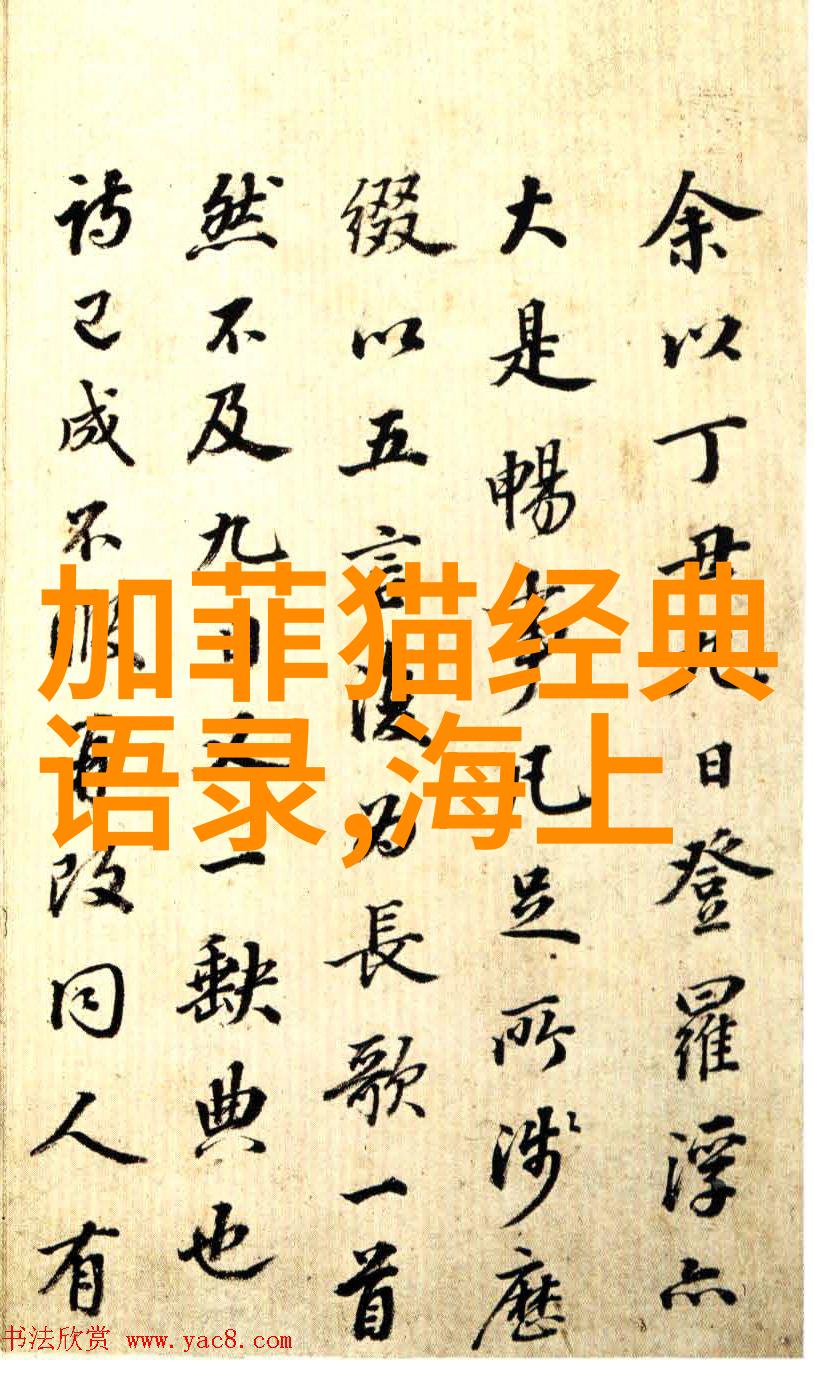 加菲猫经典
语录,海上
余以丁丑九日登羅浮亦
大是暢事凡足所涉歷
綴以五言復為長歌一首
然不及九日一缺典也
詩已成不暇再改同人有
书法欣赏 www.yac8.com